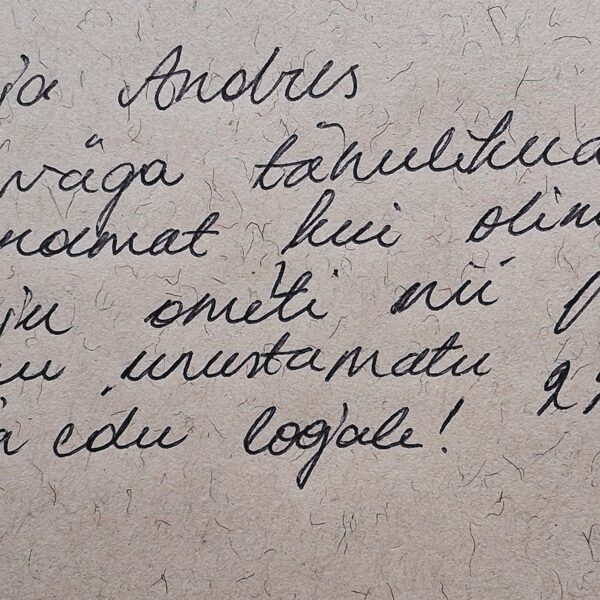 ja Andres
väga tänulikud
namat kui olim
ju ometi nii
unustamatu
edu loojale!